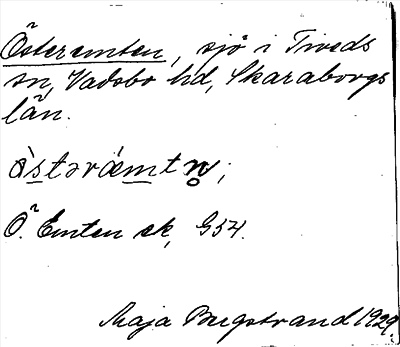 Österemten, sjö i Tiveds
sn, Vadsbo hd, Skaraborgs
län.
òstəræ̀mtn̥;
Ö. Emten ek, G54.
Maja Bergstrand 1929.